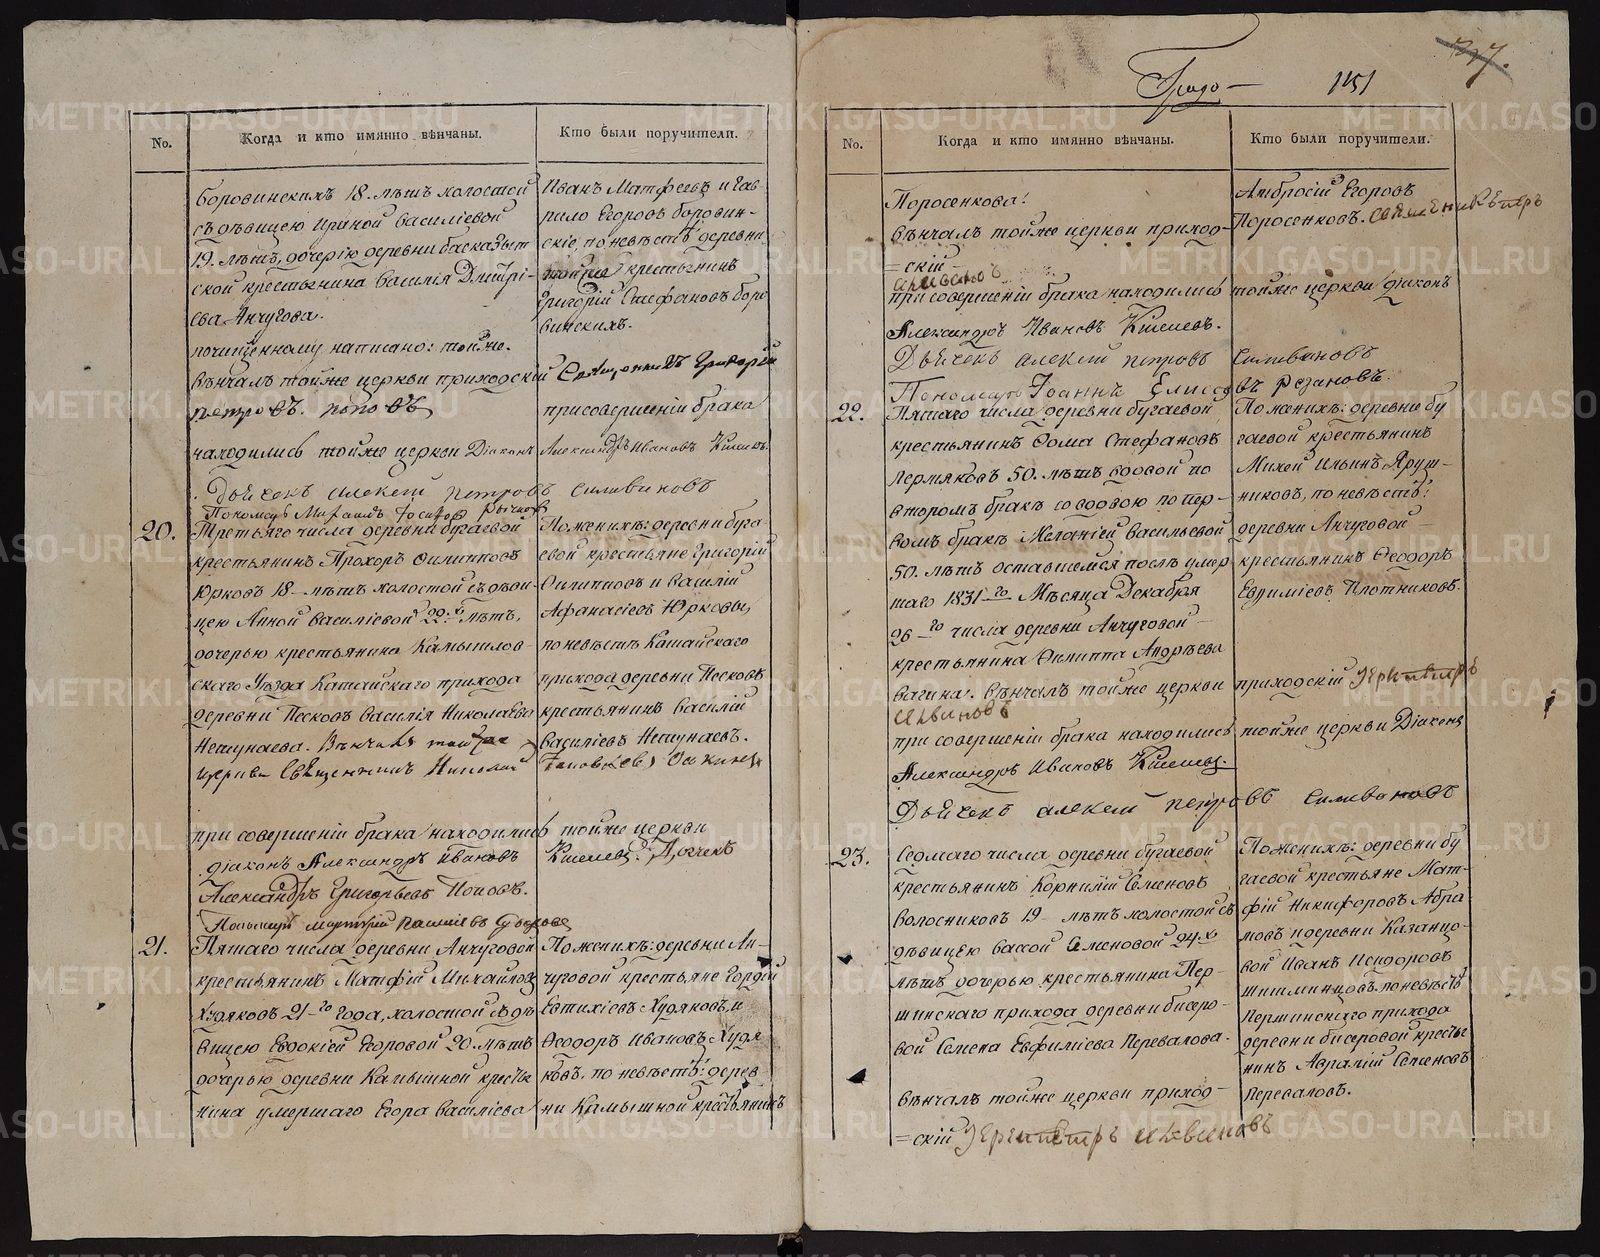 No.
Когда и кто имянно вѣнчаны.
Кто были поручители.
Боровинскихъ 18. лѣтъ холостой
съ дѣвицею Ириной Василіевой
19. лѣтъ, дочерію деревни
ской крестьянина Василія Дмитрі-
ева Анчугова.
почищенному написано: тойже.
вѣнчалъ тойже церкви приходскій Священникъ Григорій
Петровъ. Поповъ
Иванъ Матфеевъ и Гав-
рило Егоровъ Боровин-
скіе, по невѣстѣ деревни
тойже крестьянинъ
Григорій Стефановъ Боро
винскихъ.
при совершеніи брака
находились тойже церкви Діаконъ Александръ Ивановъ Киселевъ.
Дьячекъ Алексей Петровъ Силивановъ
Пономарь
20.
Третьяго числа деревни Бугаевой
крестьянинъ Прохоръ Филипповъ
Юрковъ 18 лѣтъ холостой съ дѣви
цею Анной Василіевой 22.х лѣтъ,
дочерью крестьянина Камышлов-
скаго Уѣзда Катайскаго прихода
деревни Песковъ Василія Николаева
Нешунаева. Вѣнчалъ тойже
церкви Священникъ Николай
По женихѣ: деревни Буга
евой крестьяне Григорій
Филипповъ и Василій
Афанасіевъ Юрковы,
по невѣстѣ Катайскаго
прихода деревни Песковъ
крестьянинъ Василій
Василіевъ Нешунаевъ.
при совершеніи брака находились тойже церкви
діаконъ Александръ Ивановъ Киселевъ. Дьячекъ
Александръ Григорьевъ Поповъ.
21.
Пятаго числа деревни Анчуговой
крестьянинъ Матфій Михайловъ
Худяковъ 21-го года, холостой съ дѣ
вицею Евдокіей Егоровой 20. лѣтъ
дочерью деревни Камышной крестья
нина умершаго Егора Василіева
По женихѣ: деревни Ан-
чуговой крестьяне Гордѣй
Евтихіевъ Худяковъ, и
Феодоръ Ивановъ Худя
ковъ. по невѣстѣ: дерев
ни Камышной крестьянинъ
Градо- 1151
No.
Когда и кто имянно вѣнчаны.
Кто были поручители.
Поросенкова.
вѣнчалъ тойже церкви приход-
=скій
Амбросій Егоровъ
Поросенковъ. Священник Петръ
при совершеніи брака находились тойже церкви діаконъ
Александръ Ивановъ Киселевъ.
Дьячекъ Алексей Петровъ Силивановъ
Пономарь Іоаннъ Елисеевъ Резановъ.
22.
Пятаго числа деревни Бугаевой
крестьянинъ Фома Стефановъ
Пермяковъ 50. лѣтъ вдовой по
второмъ бракѣ со вдовою по пер-
вомъ бракѣ Меланіей Васильевой
50. лѣтъ оставшейся послѣ умер
шаго 1831го Мѣсяца Декабря
26го числа деревни Анчуговой
крестьянина Филиппа Андрѣева
Вагина. вѣнчалъ тойже церкви приходскій Іерей Петръ
Силвановъ
По женихѣ: деревни Бу
гаевой крестьянинъ
Михей Ильинъ Яруш-
никовъ, по невѣстѣ:
деревни Анчуговой
крестьянинъ Феодоръ
Евфиміевъ Плотниковъ.
при совершеніи брака находились тойже церкви Діаконъ
Александръ Ивановъ Киселевъ.
Дьячекъ Алексей Петровъ Силивановъ
23.
Седмаго числа деревни Бугаевой
крестьянинъ Корнилій Семеновъ
Волосниковъ 19 лѣтъ холостой съ
дѣвицею Вассой Семеновой 24.х
лѣтъ дочерью крестьянина Пер-
шинскаго прихода деревни Бисеро-
вой Семена Евфиміева Перевалова.
вѣнчалъ тойже церкви приход-
=скій Іерей Петръ Силвановъ
По женихѣ: деревни Бу
гаевой крестьяне Мат-
фій Никифоровъ Абра
мовъ и деревни Казанцо-
вой Иванъ Исидоровъ
Шишминцовъ. по невѣстѣ
Першинскаго прихода
деревни Бисеровой крестья
нинъ Авраамій Семеновъ
Переваловъ.